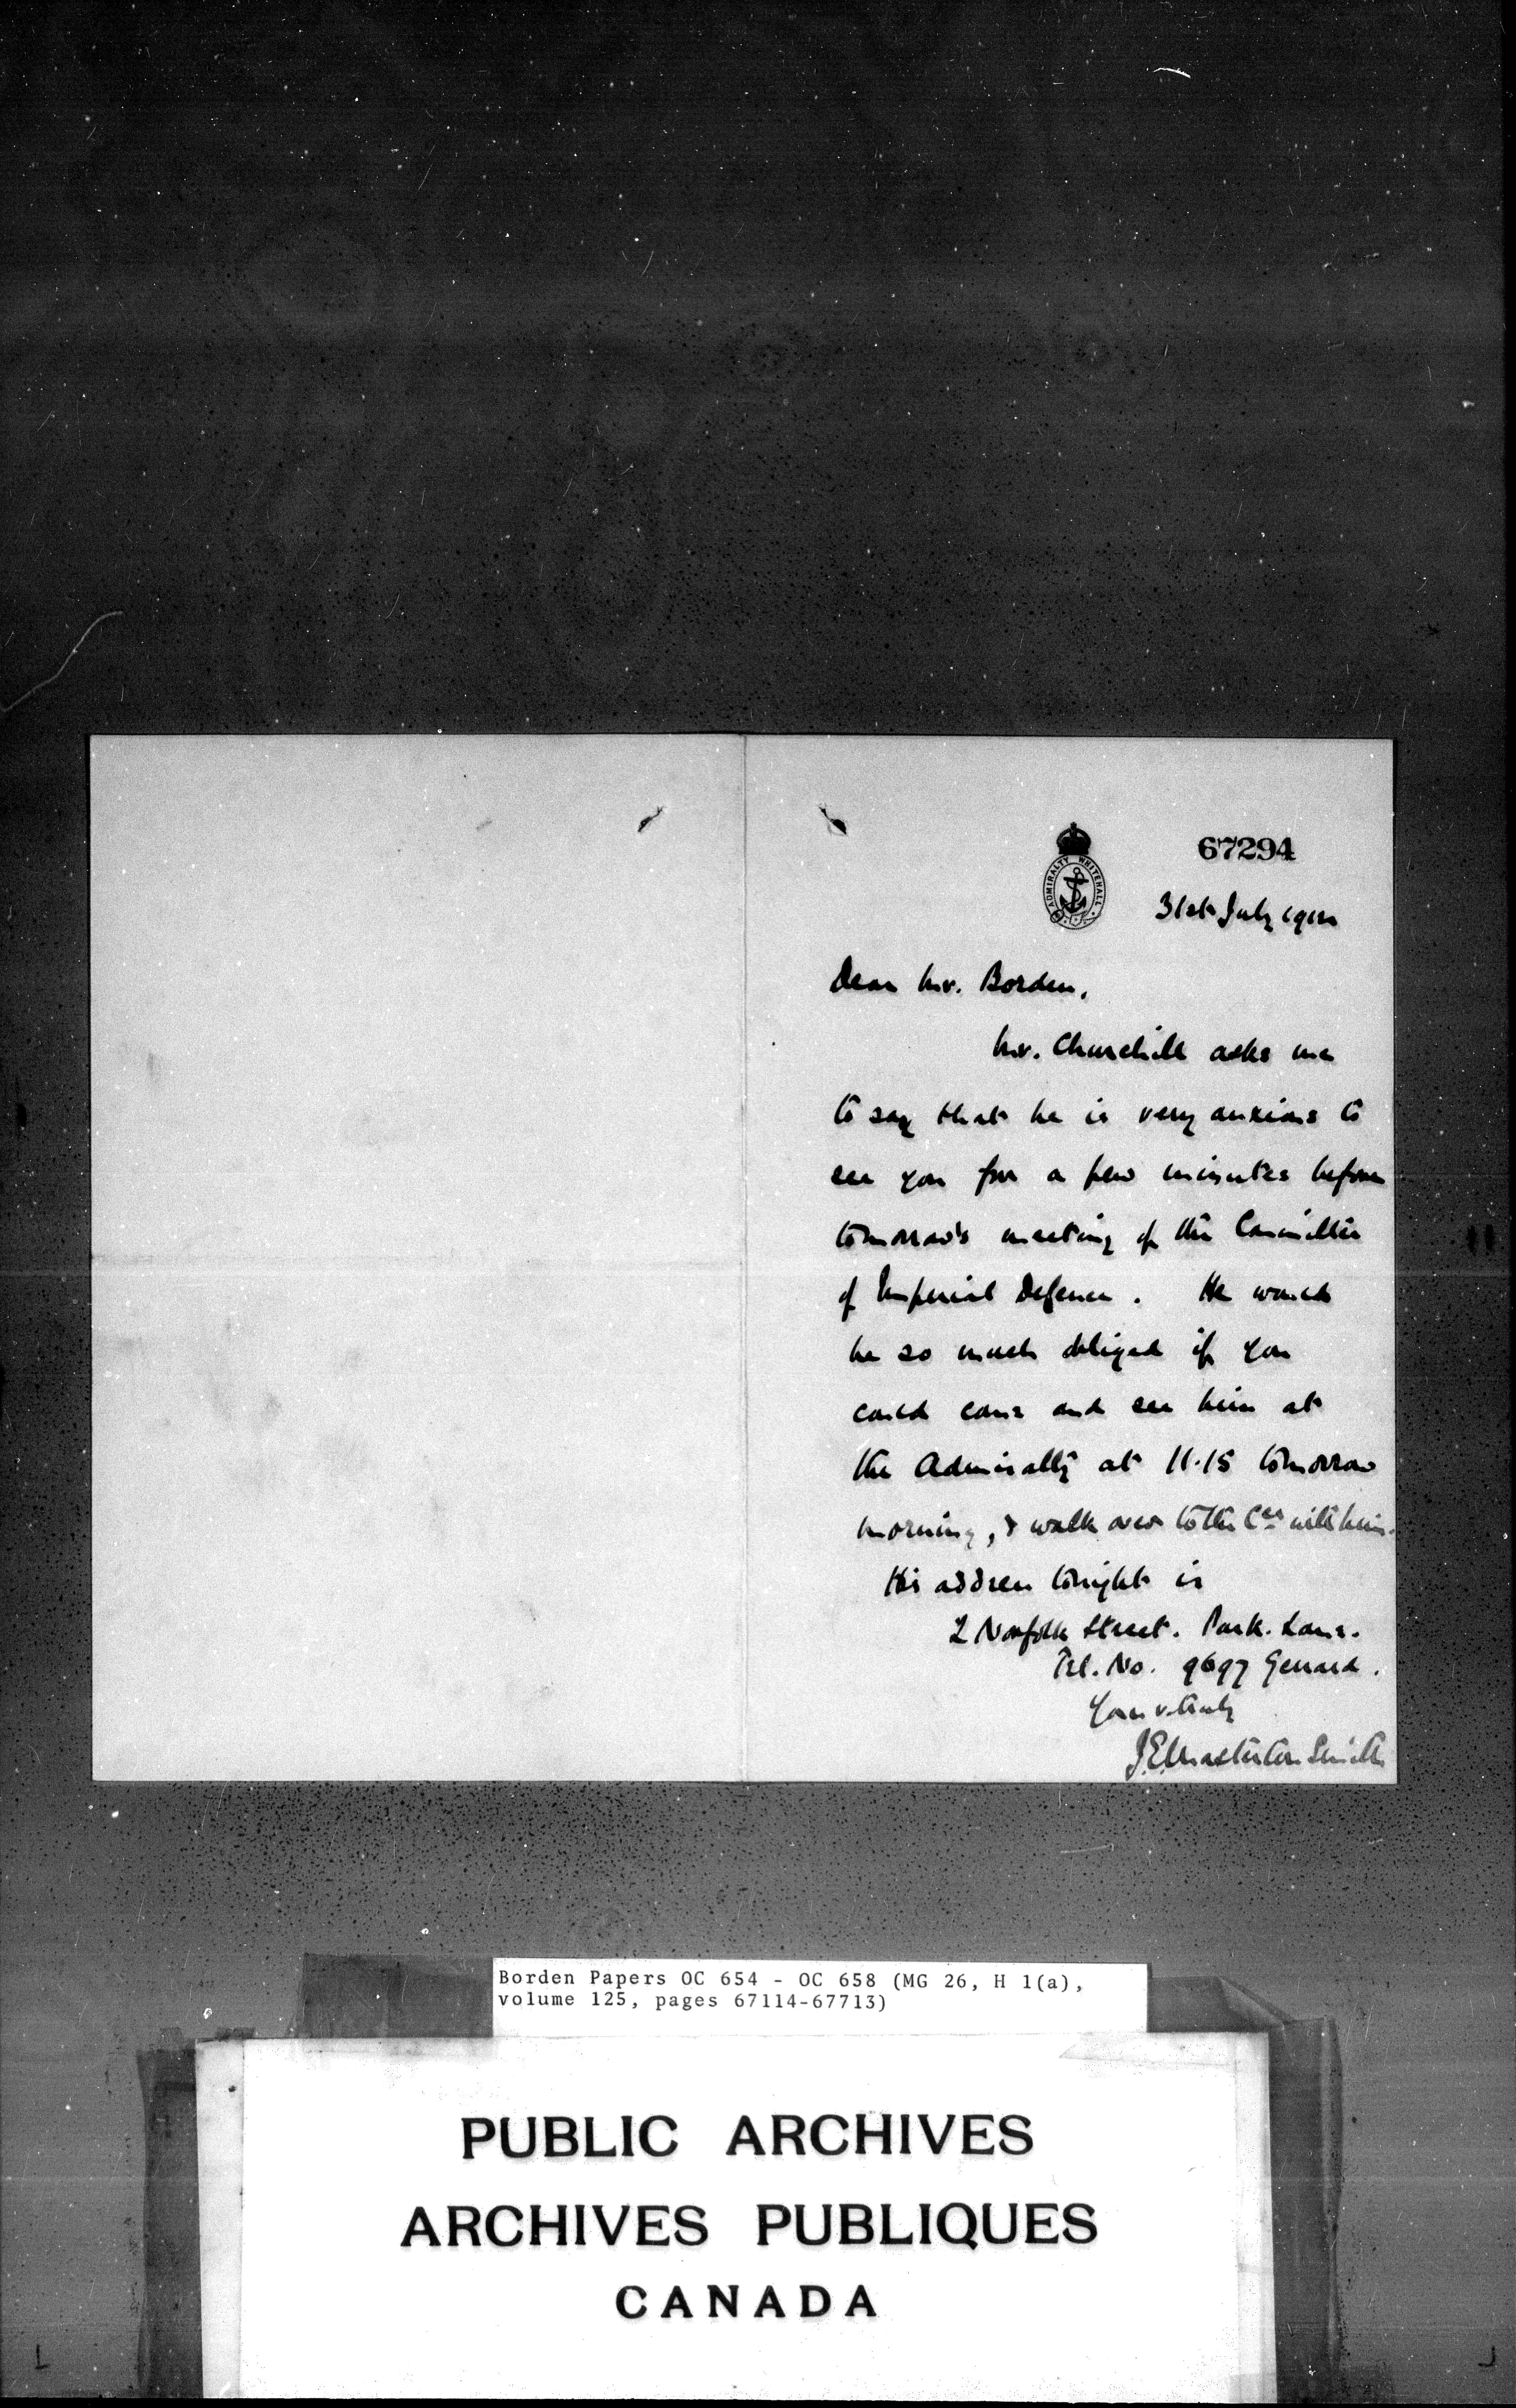 67294
ADMIRALTY WHITEHALL
31st July 1912
Dear Mr. Borden,
Mr. Churchill asks me
to say that he is very anxious to
see you for a few minutes before
tomorrow's meeting of the Committee
of Imperial Defence. He would
be so much obliged if you
could come and see him at
the Admiralty at 11.15 tomorrow
morning, & walk over to the Cee with him.
His address tonight is
2 Norfolk Street. Park. Lane.
Tel. No. 9697 Gerrard.
Yours v. truly
J.E. Masterton Smith
Borden Papers OC 654 - OC 658 (MG 26, H 1(a),
volume 125, pages 67114-67713)
PUBLIC ARCHIVES
ARCHIVES PUBLIQUES
CANADA